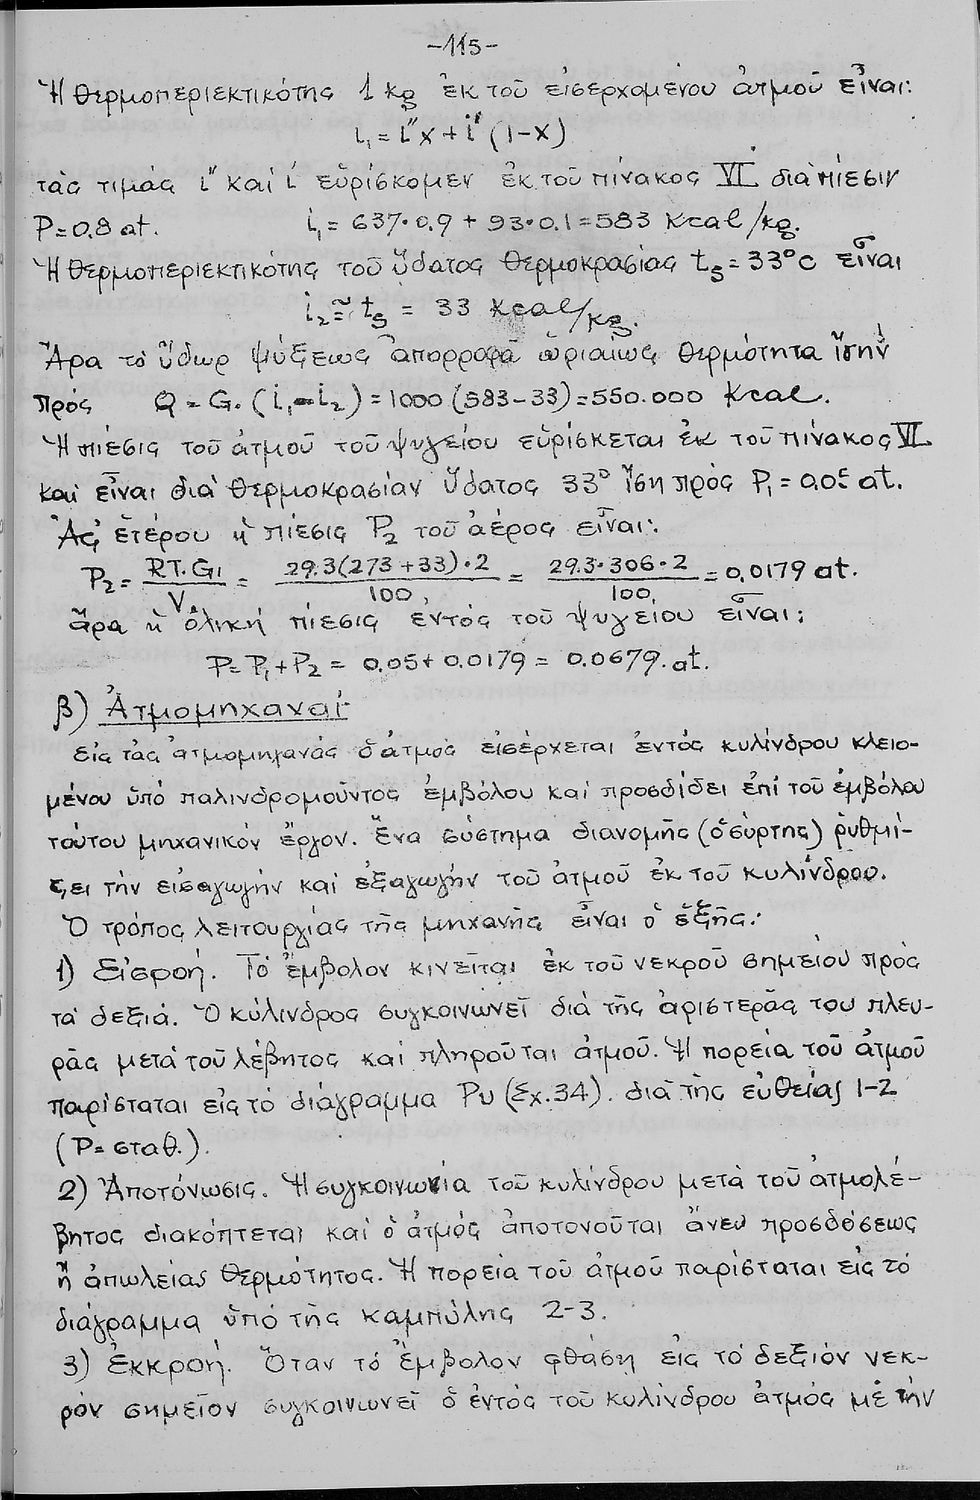 -115-
Ἡ θερμοπεριεκτικότης 1 kg ἐκ τοῦ εἰσερχομένου ἀτμοῦ εἶναι:
i₁ = i″x + i′ (1-x)
τὰς τιμάς i″ καί i′ εὑρίσκομεν ἐκ τοῦ πίνακος VI διά πίεσιν
P=0.8 at. i₁ = 637·0.9 + 93·0.1 = 583 Kcal/kg.
Ἡ θερμοπεριεκτικότης τοῦ ὕδατος θερμοκρασίας tg = 33°c εἶναι
i₂ ≅ tg = 33 Kcal/kg.
Ἄρα τό ὕδωρ ψύξεως ἀπορροφᾶ ὡριαίως θερμότητα ἴσην
πρός Q = G. (i₁-i₂) = 1000 (583-33) = 550.000 Kcal.
Ἡ πίεσις τοῦ ἀτμοῦ τοῦ ψυγείου εὑρίσκεται ἐκ τοῦ πίνακος VI
καί εἶναι διά θερμοκρασίαν ὕδατος 33° ἴση πρός P₁ = 0,05 at.
Ἀφ' ἑτέρου ἡ πίεσις P₂ τοῦ ἀέρος εἶναι:
P₂ = RT.G₁/V = 29.3(273+33)·2/100 = 29.3·306·2/100 = 0,0179 at.
ἄρα ἡ ὁλική πίεσις ἐντός τοῦ ψυγείου εἶναι:
P = P₁ + P₂ = 0.05 + 0.0179 = 0.0679. at.
β) Ἀτμομηχαναί
εἰς τὰς ἀτμομηχανάς ὁ ἀτμός εἰσέρχεται ἐντός κυλίνδρου κλειο-
μένου ὑπό παλινδρομοῦντος ἐμβόλου καί προσδίδει ἐπί τοῦ ἐμβόλου
τούτου μηχανικόν ἔργον. Ἕνα σύστημα διανομῆς (ὁ σύρτης) ῥυθμί-
ζει τήν εἰσαγωγήν καί ἐξαγωγήν τοῦ ἀτμοῦ ἐκ τοῦ κυλίνδρου.
Ὁ τρόπος λειτουργίας τῆς μηχανῆς εἶναι ὁ ἑξῆς:
1) Εἰσροή. Τό ἔμβολον κινεῖται ἐκ τοῦ νεκροῦ σημείου πρός
τά δεξιά. Ὁ κύλινδρος συγκοινωνεῖ διά τῆς ἀριστερᾶς του πλευ-
ρᾶς μετά τοῦ λέβητος καί πληροῦται ἀτμοῦ. Ἡ πορεία τοῦ ἀτμοῦ
παρίσταται εἰς τό διάγραμμα Pυ (Σχ.34). διά τῆς εὐθείας 1-2
(P= σταθ.).
2) Ἀποτόνωσις. Ἡ συγκοινωνία τοῦ κυλίνδρου μετά τοῦ ἀτμολέ-
βητος διακόπτεται καί ὁ ἀτμός ἀποτονοῦται ἄνευ προσδόσεως
ἤ ἀπωλείας θερμότητος. Ἡ πορεία τοῦ ἀτμοῦ παρίσταται εἰς τό
διάγραμμα ὑπό τῆς καμπύλης 2-3.
3) Ἐκκροή. Ὅταν τό ἔμβολον φθάση εἰς τό δεξιόν νεκ-
ρόν σημεῖον συγκοινωνεῖ ὁ ἐντός τοῦ κυλίνδρου ἀτμός μέ τήν